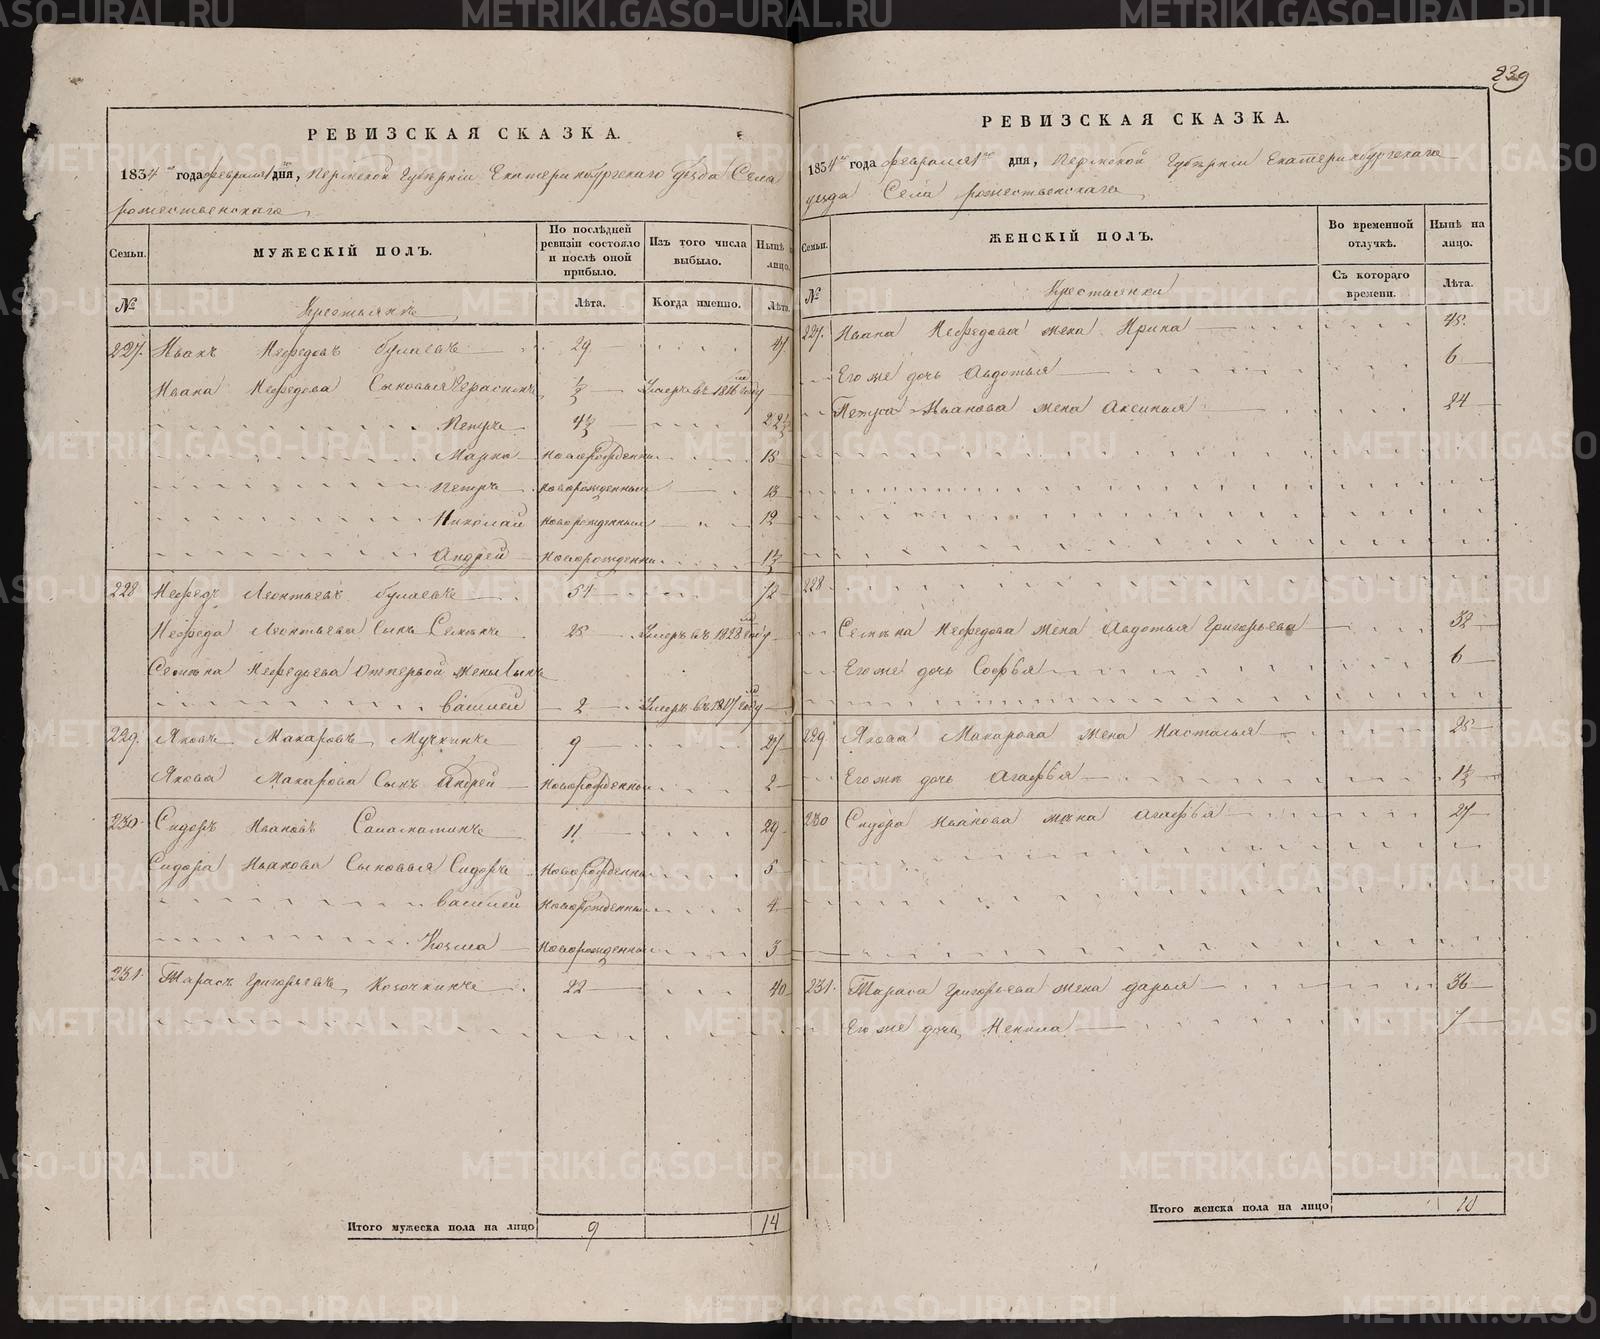 239
РЕВИЗСКАЯ СКАЗКА.
1834 го года февраля 1 дня, Пермской Губерніи Екатеринбургскаго уѣзда Села
рожественскаго
Семьи.
МУЖЕСКІЙ ПОЛЪ.
По послѣдней ревизіи состояло и послѣ оной прибыло.
Изъ того числа выбыло.
Нынѣ на лицо.
№
Крестьяне
Лѣта.
Когда именно.
Лѣта.
227. Иванъ Нефедовъ 29
Ивана Нефедова Сыновья Герасимъ 1/2 Умеръ въ 1816 году
Петръ 4 1/2 22 1/2
Марко новорожденны 15
Петръ новорожденный 13
Николай новорожденный 12
Андрей новорожденны 1 1/2
228 Нефедъ Леонтьевъ 54 72
Нефеда Леонтьева Сынъ Семенъ 25 Умеръ въ 1828 году
Семена Нефедьева от первой жены Сынъ
василей 2 Умеръ въ 1817 году
229. Яковъ Макаровъ Мучкинъ 9 27
Якова Макарова Сынъ Андрей новорожденны 2
230 Сидоръ Ивановъ 11 29
Сидора Иванова Сыновья Сидоръ новорожденны 5
василей новорожденны 4
Козма новорожденны 3
231. Тарасъ Григорьевъ Козочкинъ 22 40
Итого мужеска пола на лицо 9 14
РЕВИЗСКАЯ СКАЗКА.
1834 го года февраля 1 го дня, Пермской Губерніи Екатеринбургскаго
уезда Села рожественскаго
Семьи.
ЖЕНСКІЙ ПОЛЪ.
Во временной отлучкѣ.
Нынѣ на лицо.
№
Крестьянки
Съ котораго времени.
Лѣта.
227. Ивана Нефедова жена Ирина 45
Его же дочь Авдотья 6
Петра Иванова жена Аксинья 24
228
Семена Нефедова жена Авдотья Григорьева 32
Его же дочь Софья 6
229 Якова Макарова жена Настасья 25
Его же дочь Агафья 1 1/2
230 Сидора Иванова жена Агафья 27
231. Тараса Григорьева жена дарья 36
Его же дочь Ненила 7
Итого женска пола на лицо 10
METRIKI.GASO-URAL.RU